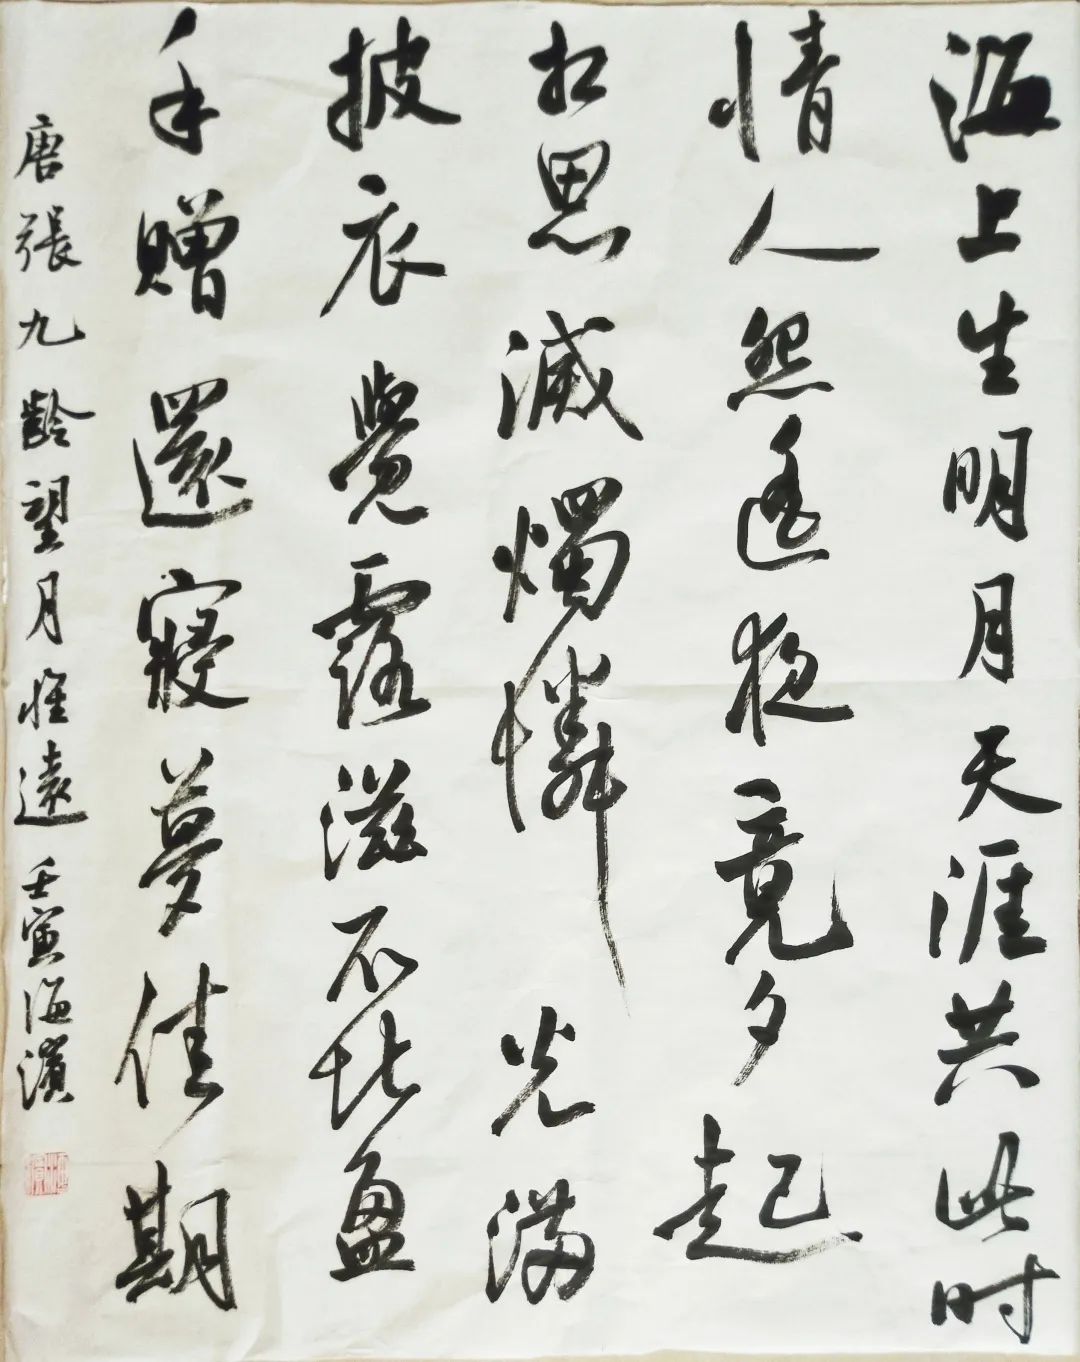 海上生明月天涯共此时
情人怨遙夜竟夕起
相思滅燭憐光滿
披衣覺露滋不堪盈
手贈還寢夢佳期
唐張九齡望月懷遠壬寅海濱